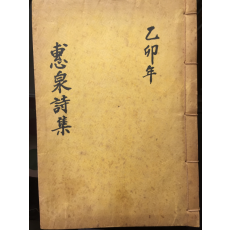 乙卯年
惠泉詩集